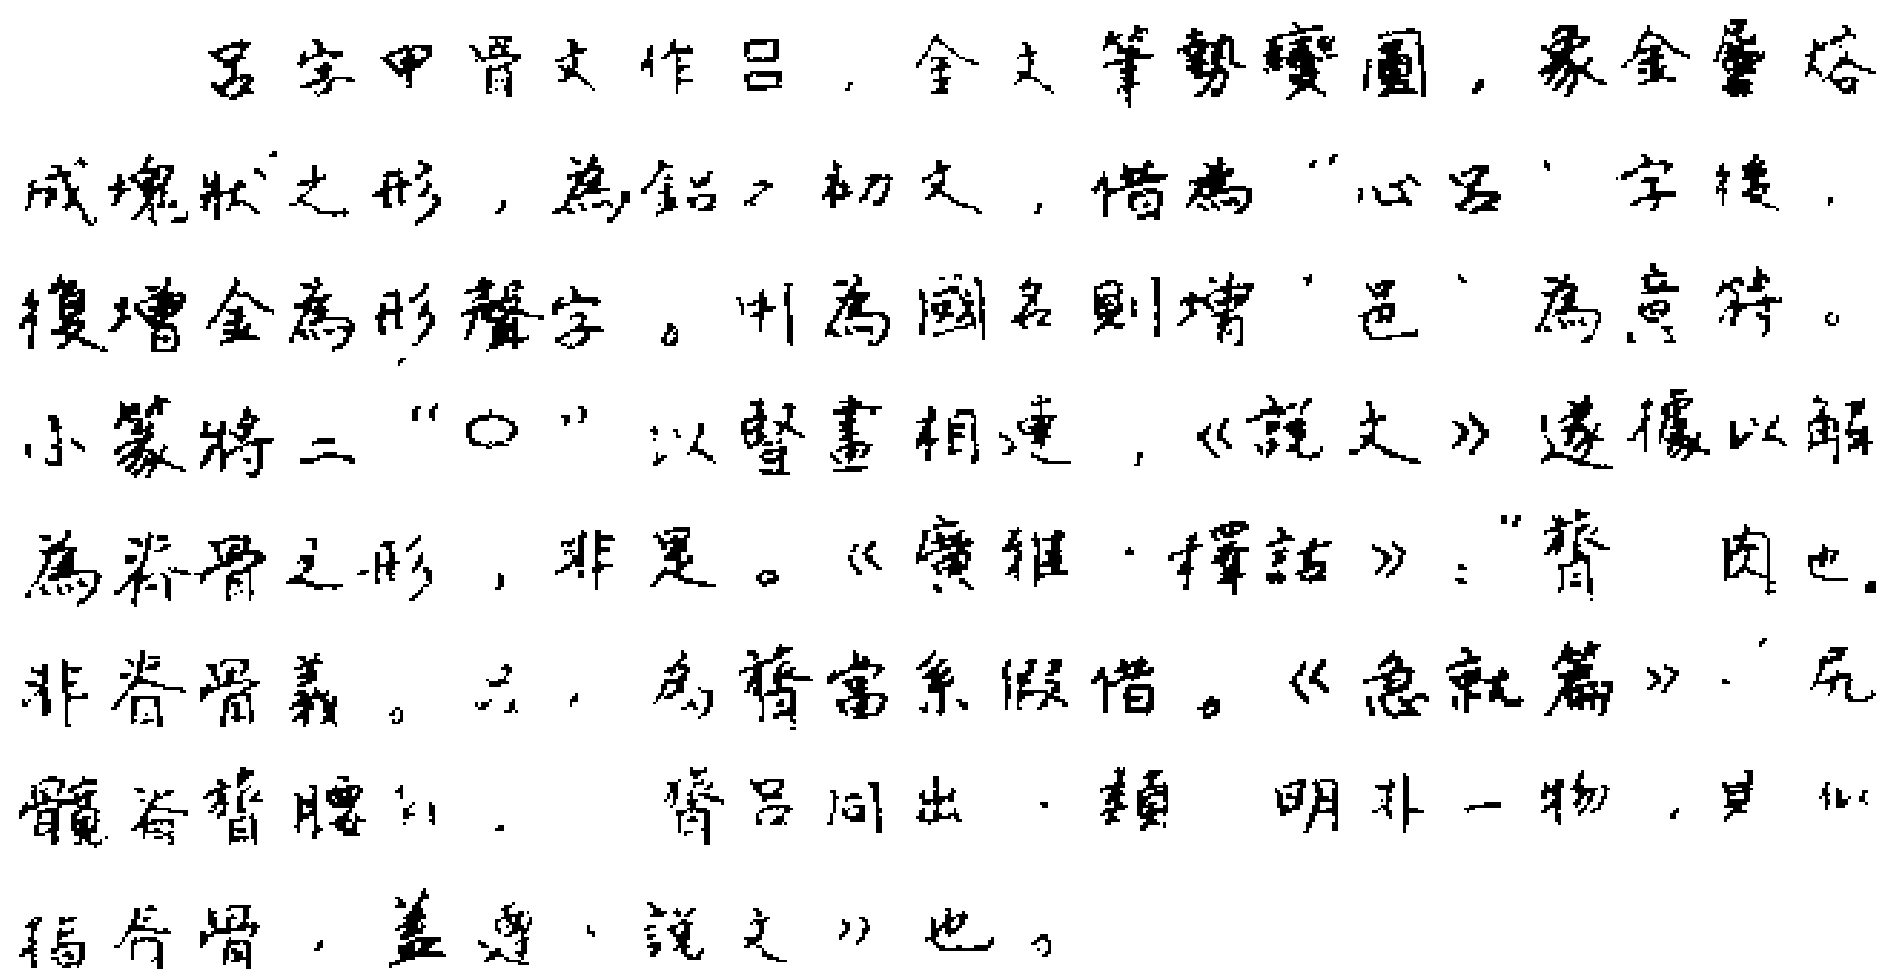 呂字甲骨文作吕，金文筆勢變圓，象金屬熔
成塊狀之形，為鋁之初文，借為“心呂”字後，
復增金為形聲字。用為國名則增“邑”為意符。
小篆將二“○”以豎畫相連，《說文》遂據以解
為脊骨之形，非是。《廣雅·釋詁》：“膂 肉也。
非脊骨義。 為膂當系假借。《急就篇》 尻
髖脊膂腰 膂呂同出 類 明非一物，其
指脊骨，蓋 《說文》也。